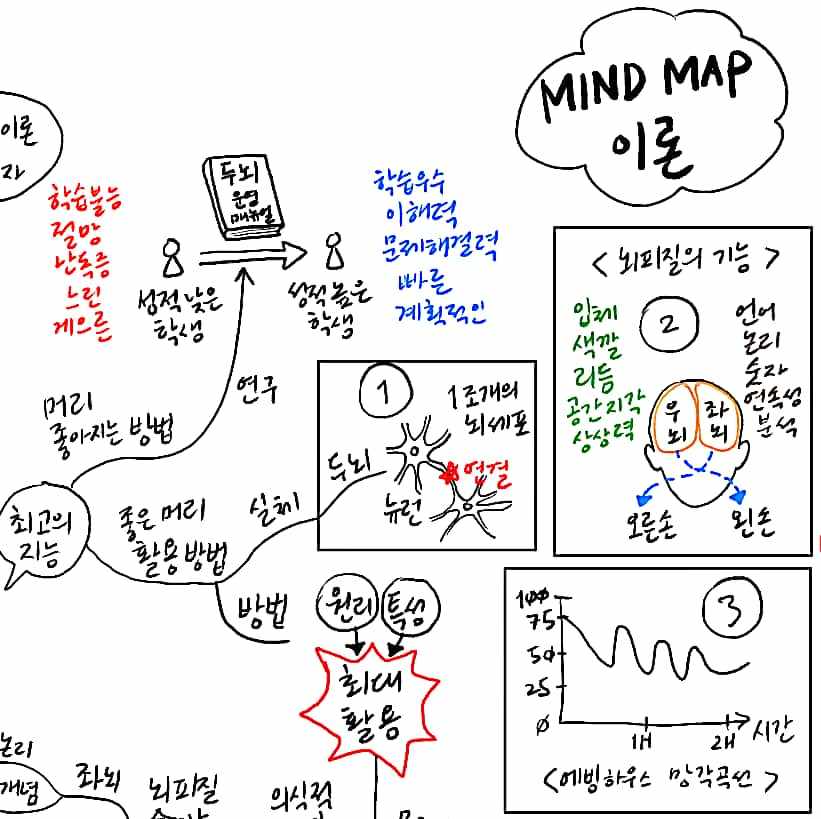 MIND MAP
이론
이론
자
학습불능
절망
난독증
느린
게으른
두뇌
운영
매뉴얼
성적 낮은
학생
성적 높은
학생
학습우수
이해력
문제해결력
빠른
계획적인
연구
머리
좋아지는 방법
최고의
지능
좋은 머리
활용 방법
실체
방법
1
1조개의
뇌세포
두뇌
연결
뉴런
<뇌피질의 기능>
2
입체
색깔
리듬
공간지각
상상력
언어
논리
숫자
연속성
분석
우뇌
좌뇌
오른손
왼손
원리
특성
최대
활용
3
100
75
50
25
0
1H
2H
시간
<에빙하우스 망각곡선>
논리
개념
좌뇌
뇌피질
의식적